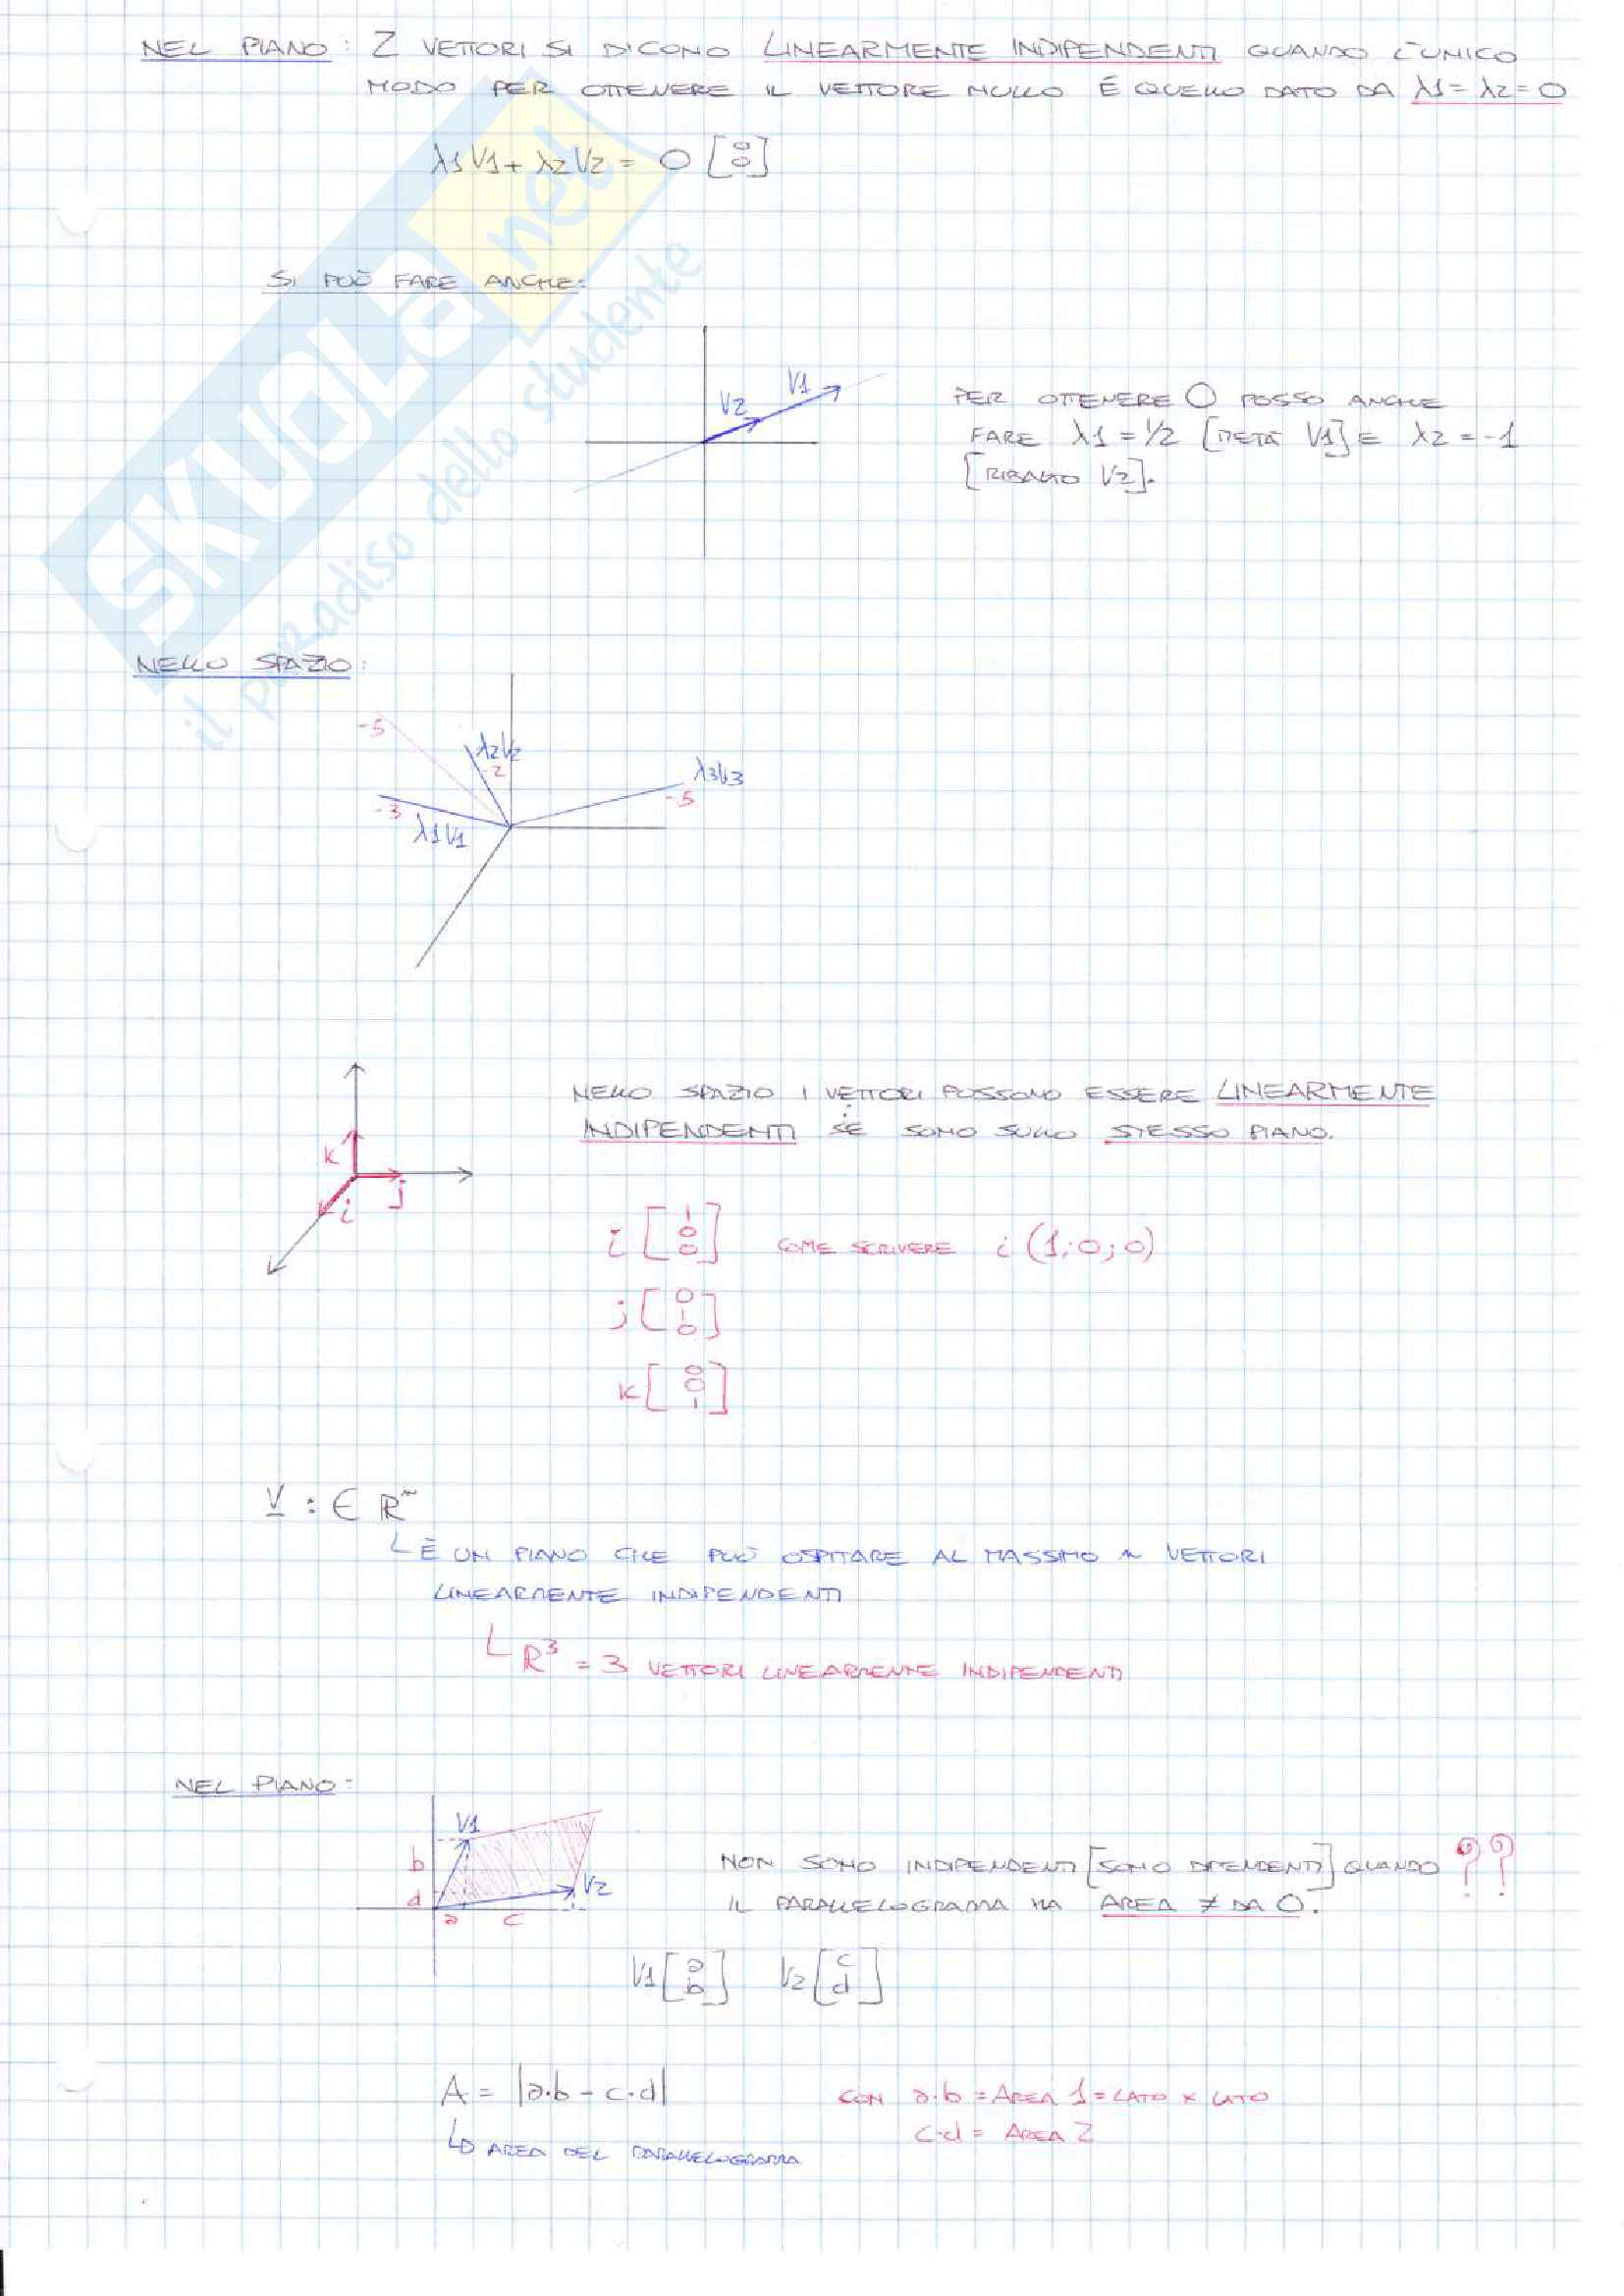 NEL PIANO: 2 VETTORI SI DICONO LINEARMENTE INDIPENDENTI QUANDO L'UNICO
MODO PER OTTENERE IL VETTORE NULLO È QUELLO DATO DA λ1 = λ2 = 0
λ1V1 + λ2V2 = 0 [0 0]
SKUOLA.net
il paradiso dello studente
SI PUÒ FARE ANCHE:
V2 V1
PER OTTENERE 0 POSSO ANCHE
FARE λ1 = 1/2 [METÀ V1] E λ2 = -1
[RIBALTO V2].
NELLO SPAZIO:
-5
λ2V2
-2
λ3V3
-5
-3
λ1V1
NELLO SPAZIO I VETTORI POSSONO ESSERE LINEARMENTE
INDIPENDENTI SE SONO SULLO STESSO PIANO.
k
i j
i [1 0 0] COME SCRIVERE i (1;0;0)
j [0 1 0]
k [0 0 1]
V : ∈ Rⁿ
È UN PIANO CHE PUÒ OSPITARE AL MASSIMO n VETTORI
LINEARMENTE INDIPENDENTI
R³ = 3 VETTORI LINEARMENTE INDIPENDENTI
NEL PIANO:
V1
b
d
V2
a c
NON SONO INDIPENDENTI [SONO DIPENDENTI] QUANDO ??
IL PARALLELOGRAMA HA AREA ≠ DA 0.
V1 [a b] V2 [c d]
A = |a·b - c·d| CON a·b = AREA 1 = LATO x LATO
c·d = AREA 2
AREA DEL PARALLELOGRAMMA